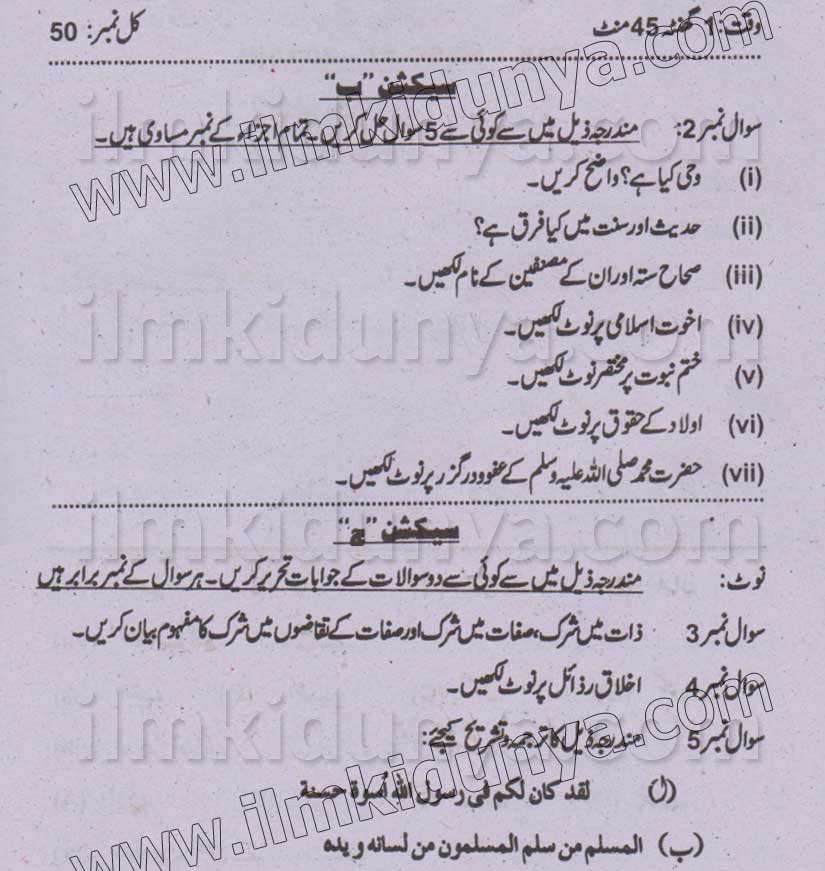 وقت: 1 گھنٹہ 45 منٹ کل نمبر: 50
سیکشن "ب"
سوال نمبر 2: مندرجہ ذیل میں سے کوئی سے 5 سوال حل کریں۔ تمام اجزاء کے نمبر مساوی ہیں۔
(i) وحی کیا ہے؟ واضح کریں۔
(ii) حدیث اور سنت میں کیا فرق ہے؟
(iii) صحاح ستہ اور ان کے مصنفین کے نام لکھیں۔
(iv) اخوت اسلامی پر نوٹ لکھیں۔
(v) ختم نبوت پر مختصر نوٹ لکھیں۔
(vi) اولاد کے حقوق پر نوٹ لکھیں۔
(vii) حضرت محمد صلی اللہ علیہ وسلم کے عفوودرگزر پر نوٹ لکھیں۔
سیکشن "ج"
نوٹ: مندرجہ ذیل میں سے کوئی سے دو سوالات کے جوابات تحریر کریں۔ ہر سوال کے نمبر برابر ہیں
سوال نمبر 3 ذات میں شرک، صفات میں شرک اور صفات کے تقاضوں میں شرک کا مفہوم بیان کریں۔
سوال نمبر 4 اخلاق رذائل پر نوٹ لکھیں۔
سوال نمبر 5 مندرجہ ذیل کا ترجمہ و تشریح کیجئے:
(ا) لقد كان لكم فى رسول الله أسوة حسنة
(ب) المسلم من سلم المسلمون من لسانه ويده
www.ilmkidunya.com
ilmkidunya.com
ilmkidunya.com
ilmkidunya.com
ilmkidunya.com
www.ilmkidunya.com